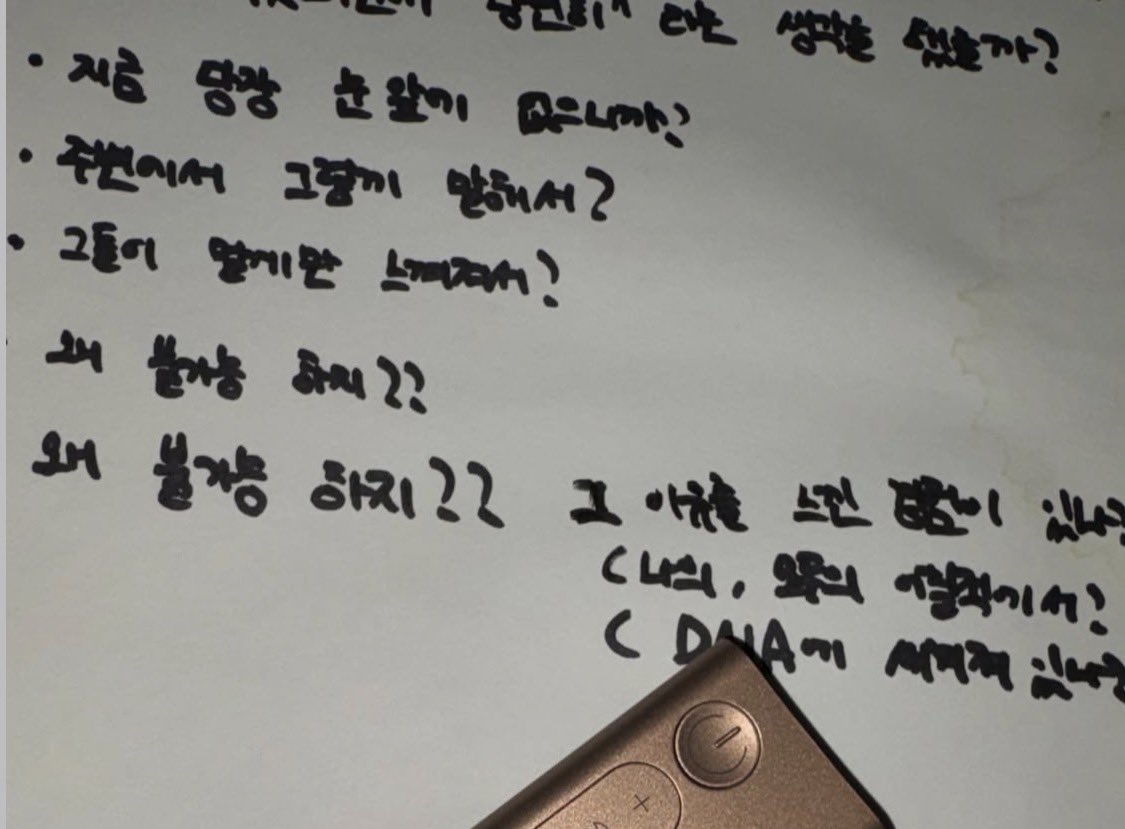 라는 생각을 했을까?
· 지금 당장 눈앞에 없으니까?
· 주변에서 그렇게 말해서?
· 그들이 멀게만 느껴져서?
왜 불가능 하지??
왜 불가능 하지??
그 이유를 느낀 경험이 있나?
( 나의, 모두의 어릴적에서?
( DNA에 새겨져 있나?